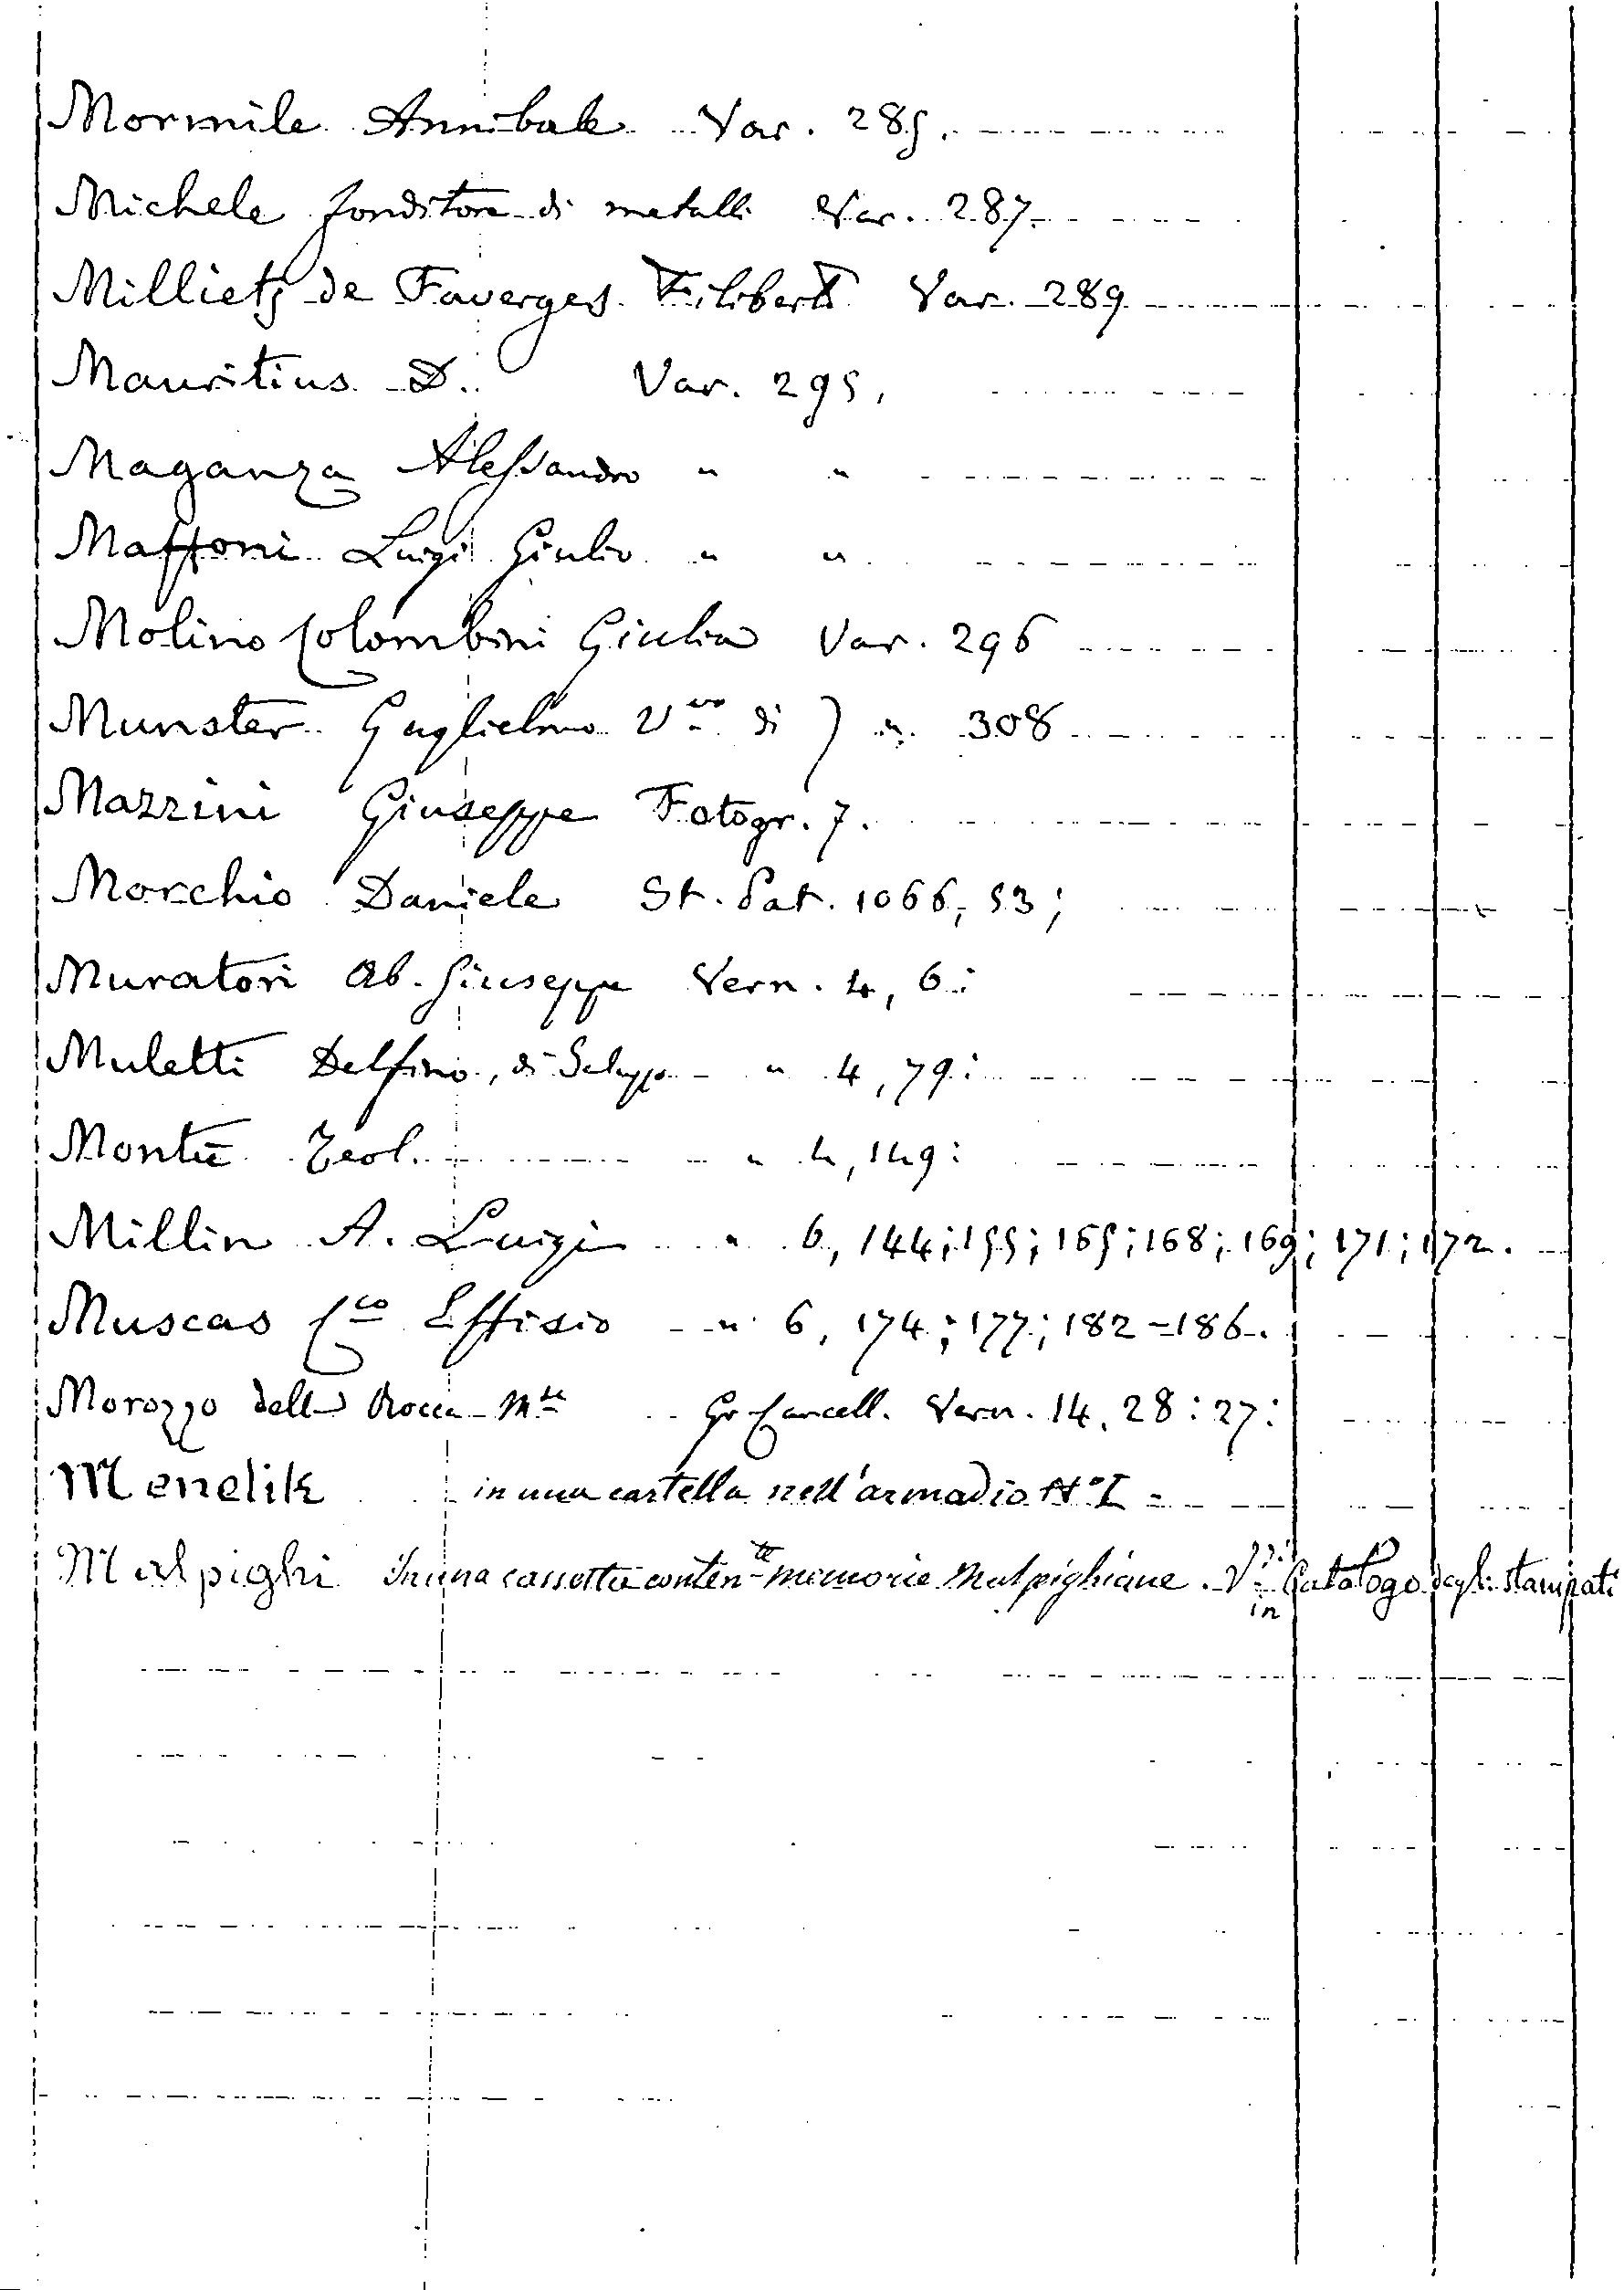 Mormile Annibale Var. 285.
Michele fonditore di metalli Var. 287.
Milliets de Faverges Filiberto Var. 289
Mauritius D. Var. 295,
Maganza Alessandro " "
Maffoni Luigi Giulio " "
Molino Colombini Giulia Var. 296
Munster Guglielmo V.vo di ) " 308
Mazzini Giuseppe Fotogr. 7.
Morchio Daniele St. Pat. 1066, 53;
Muratori Ab. Giuseppe Vern. 4, 6:
Muletti Delfino, di Saluzzo " 4, 79:
Monte Teol. " 4, 149:
Millin A. Luigi " 6, 144; 155; 165; 168; 169; 171; 172.
Muscas Co Effisio " 6, 174; 177; 182-186.
Morozzo della Rocca Mse Gr Cancell. Vern. 14, 28: 27:
Menelik in una cartella nell'armadio No I -
Malpighi In una cassetta contente memorie Malpighiane. V. in Catalogo degli stampati